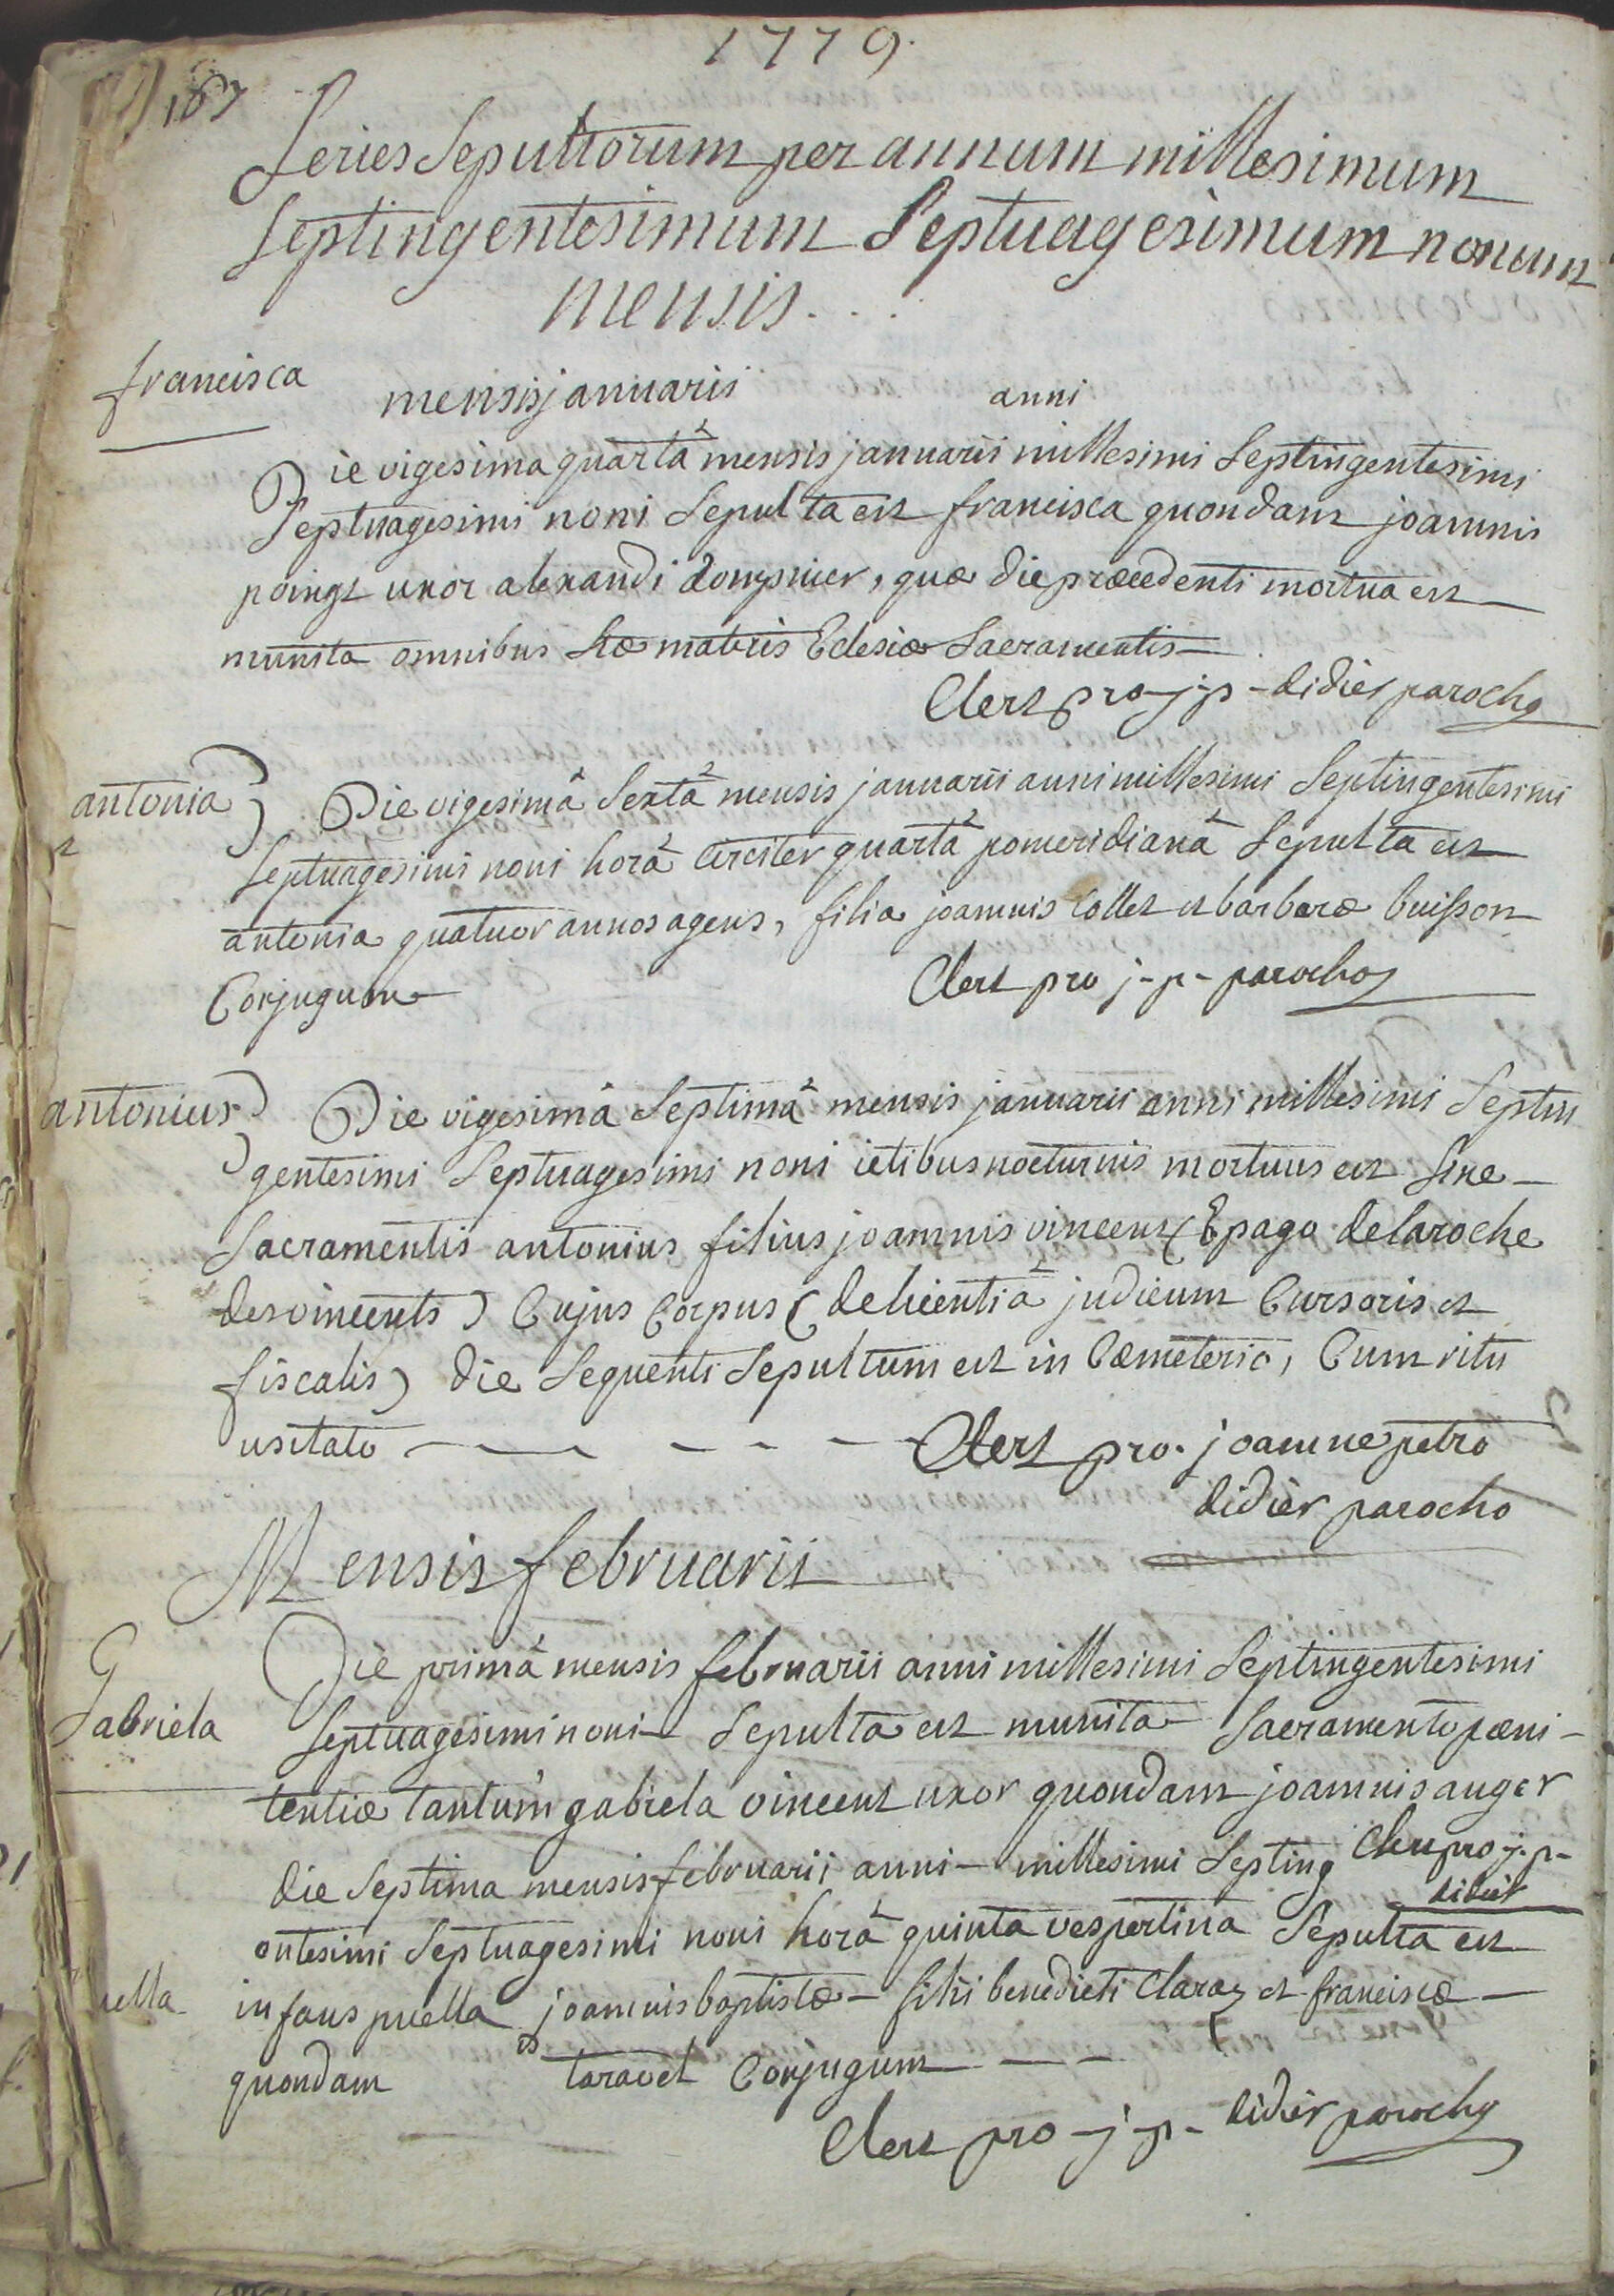 1779.
167
Series Sepultorum per annum millesimum
Septingentesimum Septuagesimum nonum
mensis...
francisca
mensis januarii
anni
Die vigesima quartâ mensis januarii millesimi Septingentesimi
Septuagesimi noni Sepulta est francisca quondam joannis
poingt uxor alexandi dompnier, quæ die præcedenti mortua est
munita omnibus Stæ matris Eclesiæ Sacramentis
Clert pro j-p-didier parocho
antonia
Die vigesimâ Sextâ mensis januarii anni millesimi Septingentesimi
Septuagesimi noni horâ circiter quartâ pomeridianâ Sepulta est
antonia quatuor annos agens, filia joannis Collet et barbaræ buisson
Conjugum
Clert pro j-p-parocho
antonius
Die vigesimâ Septimâ mensis januarii anni millesimi Septin
gentesimi Septuagesimi noni ictibus nocturnis mortuus est Sine
Sacramentis antonius filius joannis vincent (E pago delaroche
desvincents) Cujus Corpus (delicentiâ judicum Cursoris et
fiscalis) die Sequenti Sepultum est in Cæmeterio, Cum ritu
usitato - - - - Clert pro joanne petro
didier parocho
Mensis februarii
Gabriela
Die primâ mensis februarii anni millesimi Septingentesimi
Septuagesimi noni Sepulta est munita Sacramento pæni-
tentiæ tantum gabriela vincent uxor quondam joannis auger
Clert pro j-p-
didier
die Septima mensis februarii anni millesimi Septing
entesimi Septuagesimi noni horâ quinta vespertina Sepulta est
uella
infans puella joannis baptistæ filii benedicti Claraz et franciscæ
quondam taravel Conjugum
Clert pro j-p-didier parocho